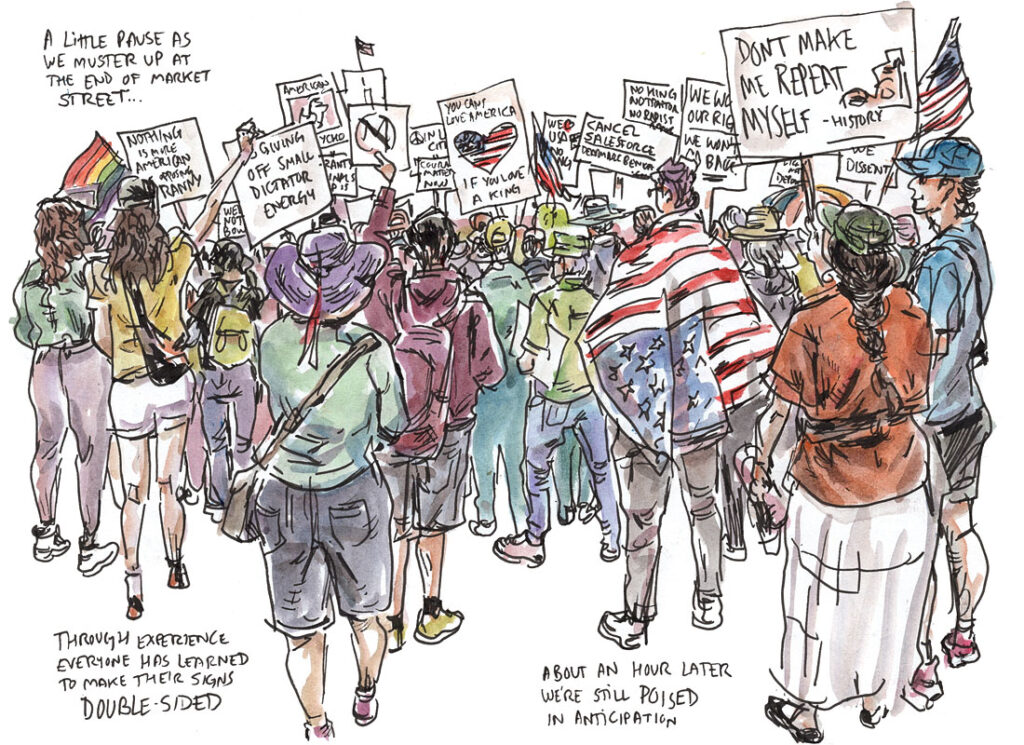 A LITTLE PAUSE AS
WE MUSTER UP AT
THE END OF MARKET
STREET...
NOTHING
IS MORE
AMERICAN
OPPOSING
RANNY
GIVING
OFF SMALL
DICTATOR
ENERGY
AMERICAN
YCHO
YOU CAN'T
LOVE AMERICA
IF YOU LOVE
A KING
CANCEL
SALESFORCE
NO KING
NO TRAITOR
NO RAPIST
WE WO
OUR RIG
WE WON'T
BACK
DONT MAKE
ME REPEAT
MYSELF - HISTORY
WE
DISSENT
WE
NOT
BOW
THROUGH EXPERIENCE
EVERYONE HAS LEARNED
TO MAKE THEIR SIGNS
DOUBLE-SIDED
ABOUT AN HOUR LATER
WE'RE STILL POISED
IN ANTICIPATION